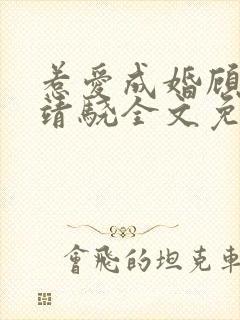 惹愛成婚顧
靖驍全文免
會飛的坦克車